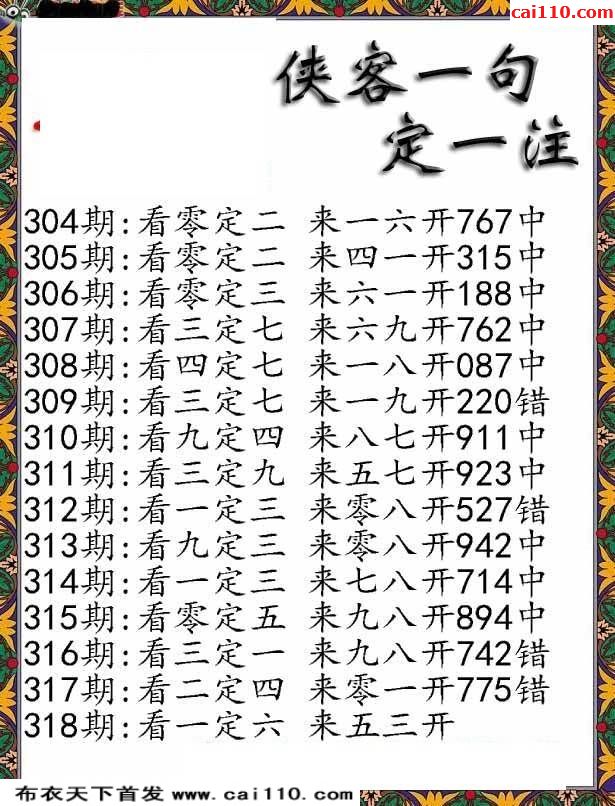 cai110.com
侠客一句
定一注
304期:看零定二 来一六开767中
305期:看零定二 来四一开315中
306期:看零定三 来六一开188中
307期:看三定七 来六九开762中
308期:看四定七 来一八开087中
309期:看三定七 来一九开220错
310期:看九定四 来八七开911中
311期:看三定九 来五七开923中
312期:看一定三 来零八开527错
313期:看九定三 来零八开942中
314期:看一定三 来七八开714中
315期:看零定五 来九八开894中
316期:看三定一 来九八开742错
317期:看二定四 来零一开775错
318期:看一定六 来五三开
布衣天下首发 www.cai110.com